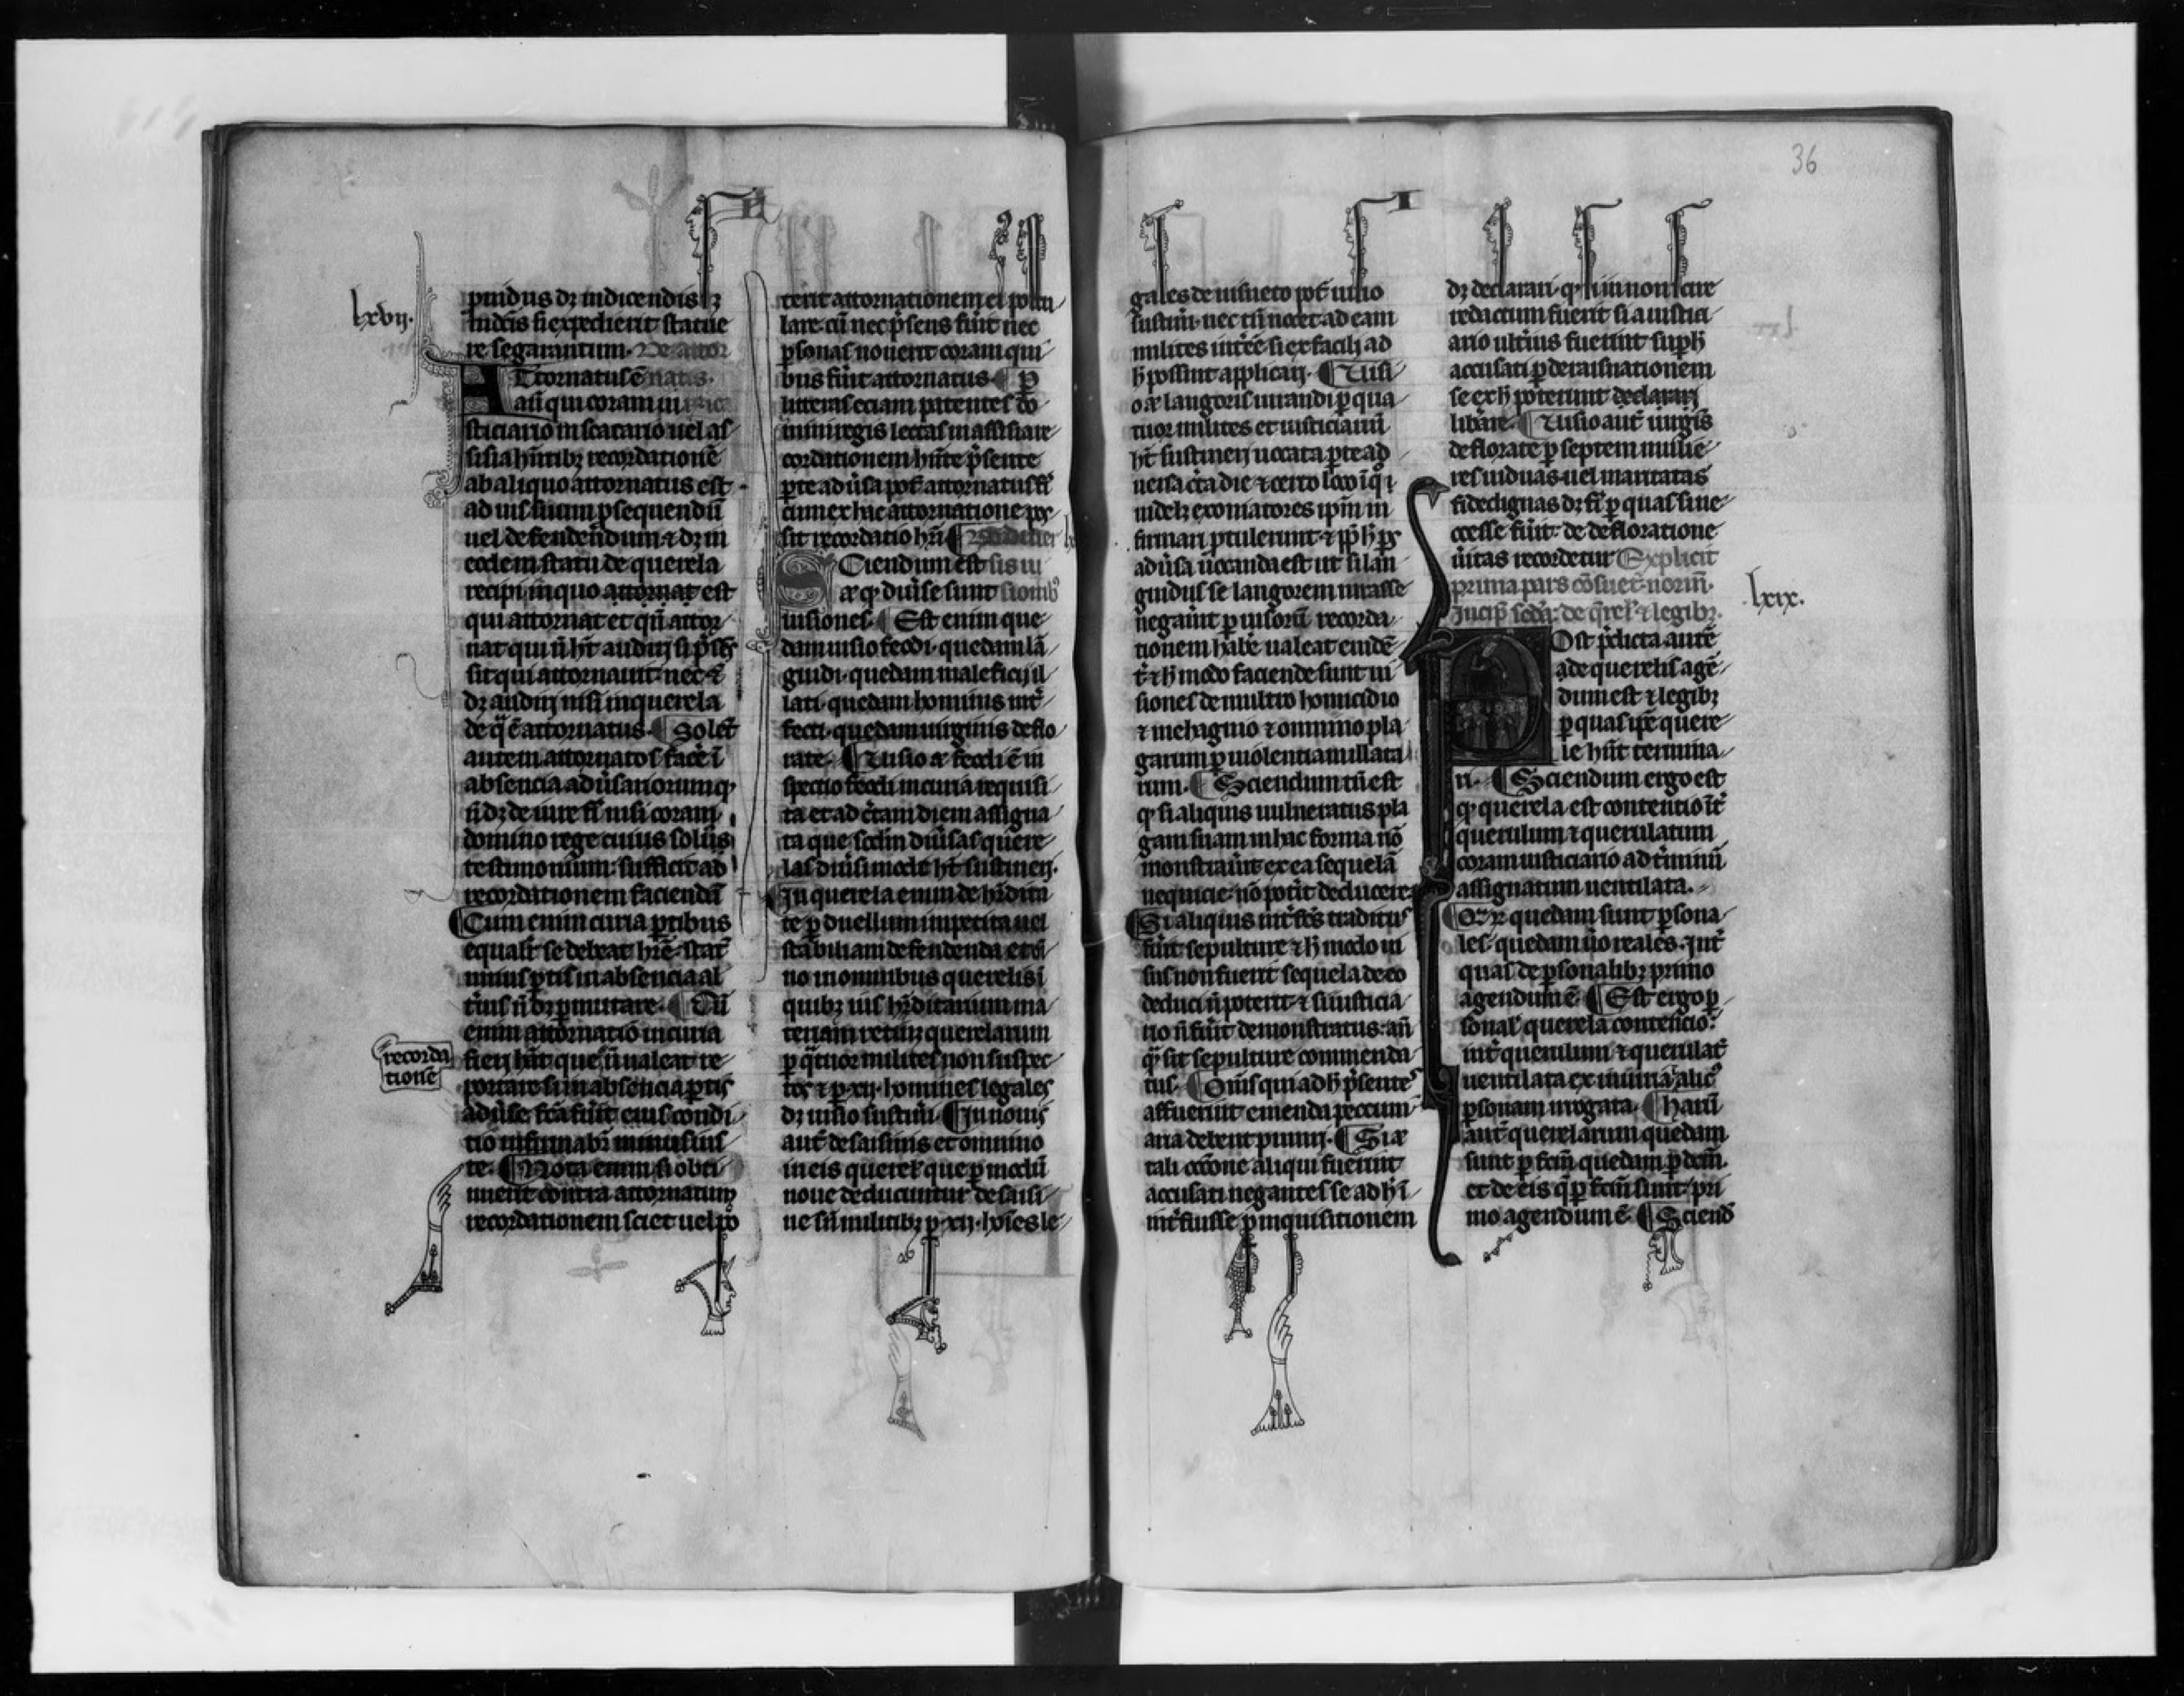 36
II
I
lxvij.
pendus dꝫ in dicendis ꝫ
iudicis si expedierit statue
re se garantum. De attor
ATtornatus ē natis.
aūt qui coram iu
sticiario in scacario uel as
sisia hn̄tibꝫ recordationē
ab aliquo attornatus est
ad ius suum ꝓsequendū
uel defendendum ⁊ dꝫ in
eodem statu de querela
recipi in quo attornat est
qui attornat et qn̄ attor
nat qui n̄ hr̄ audiri si p̄sēs
sit qui attornauit nec ē
dꝫ audiri nisi in querela
de q̄ ē attornatus. Solet
autem attornatos facē ī
absencia aduersariorum qͥ
n̄ dꝫ de iure fi nisi coram
domino rege cuius solius
testimonium sufficit ad
recordationem faciendā
Cum enim curia ꝑtibus
equalr̄ se debeat hr̄e stat
unius ꝑtis in absencia al
tius n̄ dꝫ ꝑmutare. Cū
enim attornatio in curia
fieri hāt que n̄ ualeat re
portare si in absencia ꝑtis
aduerse fc̄a fūit eius condi
tio
recorda
tionē
te. Nota enim si obti
nuerit contra attornatum
recordationem sciet uel po
terit attornationem ei postu
lare cū nec p̄sens fūit nec
ꝑsonas nouerit coram qui
bus fūit attornatus. P
litteras eciam patentes do
mini regis lectas in assisia re
cordationem hn̄te p̄sente
ꝑte aduersa pot attornatus fi
cum ex hac attornatione pos
sit recordatio hr̄i
Sciendum est sis ui
ꝙ diuerse sunt sionibꝫ
uisiones. Est enim que
dam uisio feodi. quedam lā
guidi. quedam maleficij il
lati. quedam hominis int̄
fecti. quedam uirginis deflo
rate. Uisio feodi ē in
spectio feodi in curia requisi
ta et ad certam diem assigna
ta que scd̄m diuersas quere
las diuersimode hꝫ sustineri.
In querela enim de hr̄dita
te ꝑ duellum impetita uel
stabiliam defendenda et oī
no in omnibus querelis ī
quibꝫ ius hr̄ditarium ma
teriam retinꝫ querelarum
ꝑ q̄tuor milites non suspec
tos ⁊ ꝑ xij. homines legales
dꝫ uisio sustineri. In nouis
aut de saisinis et omnino
in eis querelis que ꝑ modū
noue deducuntur desaisi
ne sn̄ militibꝫ ꝑ xij. hoīes le
gales de uisneto pot uisio
sustineri. nec tn̄ nocet ad eam
milites int̄ee si ex facili ad
h̄ possint applicari. Uisi
o langoris iurandi ꝑ qua
tuor milites et iusticiariū
hꝫ sustineri uocata ꝑte ad
uersa certa die ⁊ certo loco ī qͦ
uidelꝫ exoniatores ipm in
firmari ꝓtulerunt ⁊
aduersa uocanda est ut si lan
guidus se langorem iurasse
negauerit ꝑ uisorū recorda
tionem habē ualeat eiusdē
⁊ h̄ modo faciende sunt ui
siones de multro homicidio
⁊ mehagnio ⁊ omnino pla
garum ꝑ uiolentiam illata
rum. Sciendum tn̄ est
ꝙ si aliquis uulneratus pla
gam suam in hac forma nō
monstrauerit ex ea sequelā
nequicie nō poterit deducere
Si aliquis int̄fectus traditus
fūit sepulture ⁊ h̄ modo ui
sus non fuerit sequela de eo
deduci n̄ poterit ⁊ si iusticia
rio n̄ fūit demonstratus an̄
q̄ sit sepulture commenda
tus. Omīs qui ad h̄ p̄sentes
affuerint emenda pecuni
aria debent puniri. Si
tali occōne aliqui fuerint
accusati negantes se ad h̄ ī
int̄fuisse ꝑ inquisitionem
dꝫ declarari. ꝙ
redactum fuerit si a iustici
ario ulterius fuerint suꝑ h̄
accusati ꝑ deraisnationem
se ex h̄ poterunt declarari
libāe. Uisio aut uirginis
deflorate ꝑ septem mulie
res uiduas uel maritatas
fidedignas dꝫ fi ꝑ quas si ne
cesse fūit de defloratione
ūitas recordetur Explicit
prima pars cōsuet norm̄.
Incip̄ scd̄a de q̄rel ⁊ legibꝫ.
lxix.
POst p̄dicta autē
de querelis agē
dum est ⁊ legibꝫ
ꝑ quas quere
le hn̄t termina
ri. Sciendum ergo est
ꝙ querela est contentio int̄
querulum ⁊ querulatum
coram iusticiario ad t̄minū
assignatum uentilata.
quedam sunt ꝑsona
les. quedam ūo reales. Int̄
quas de ꝑsonalibꝫ primo
agendum ē. Est ergo ꝑ
sonal querela contencio
int̄ querulum ⁊ querulat
uentilata ex iniuria alicꝰ
ꝑsonam irrogata. Harū
aut querelarum quedam
sunt ꝑ fc̄m quedam ꝑ dc̄m.
et de eis q̄ ꝑ fc̄m sunt pri
mo agendum ē. Sciend